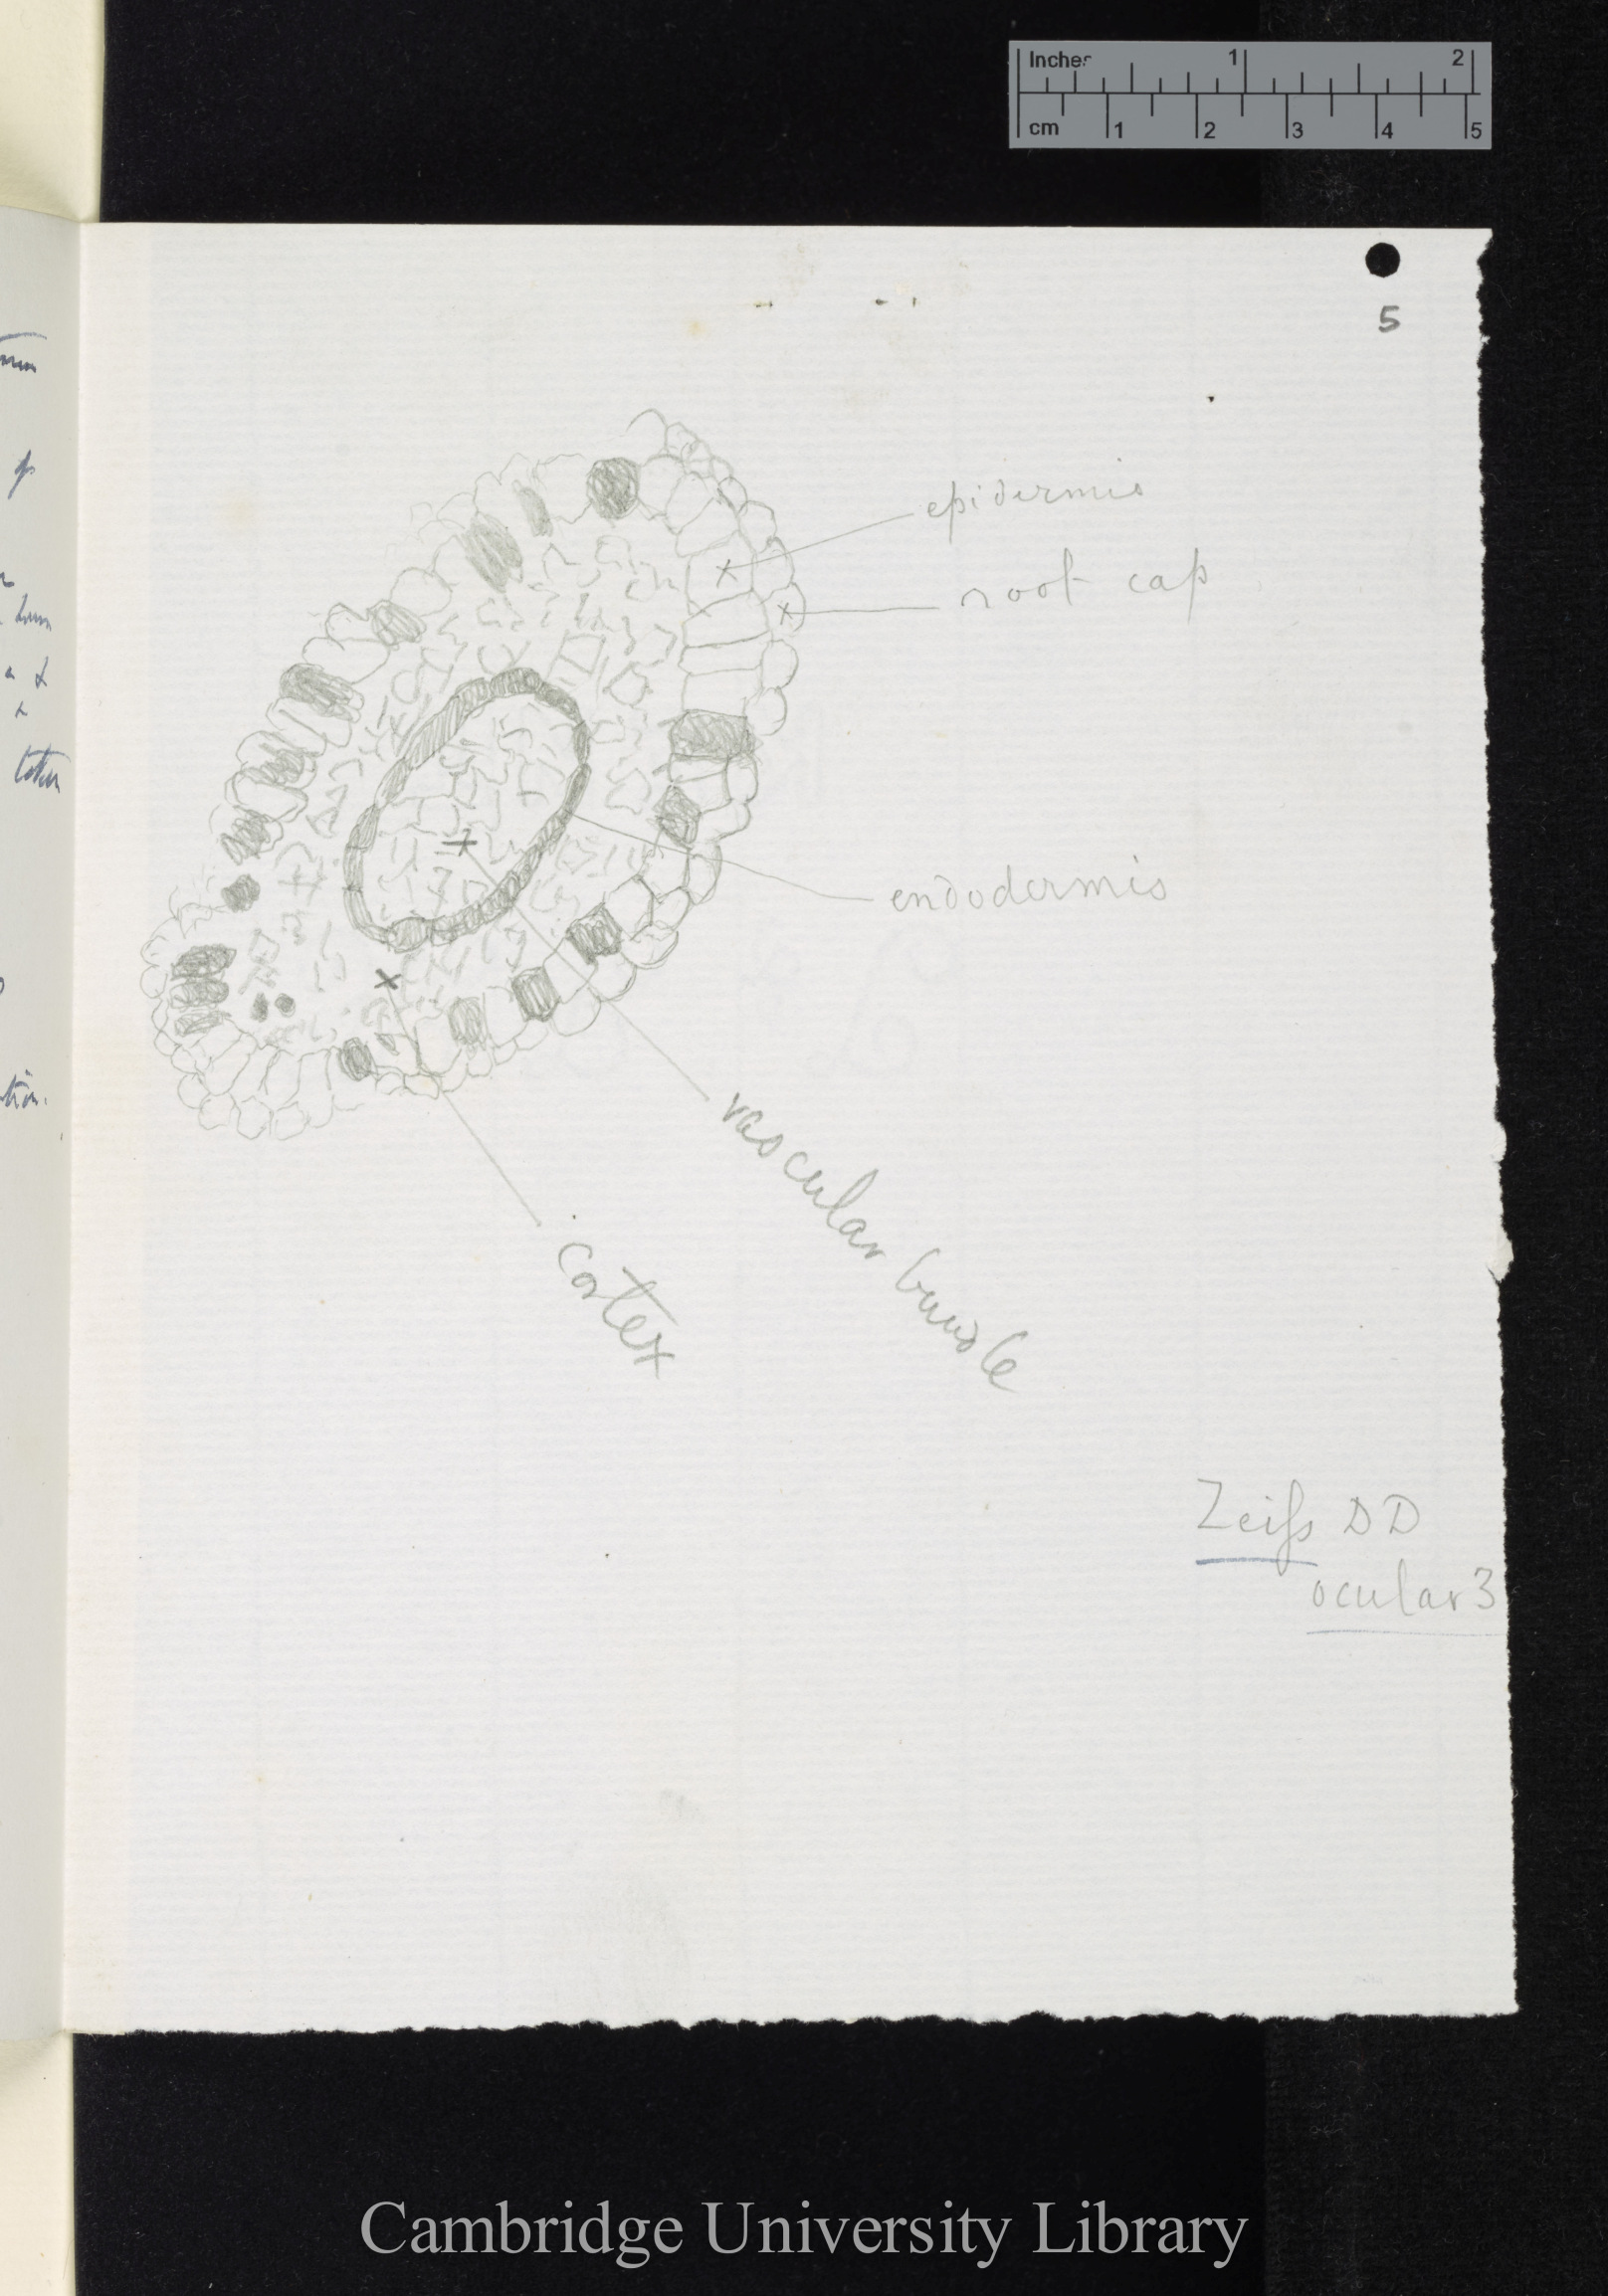 Inches 1 2
cm 1 2 3 4 5
5
epidermis
root cap
endodermis
vascular bundle
cortex
Zeiſs DD
ocular 3
tion.
Cambridge University Library